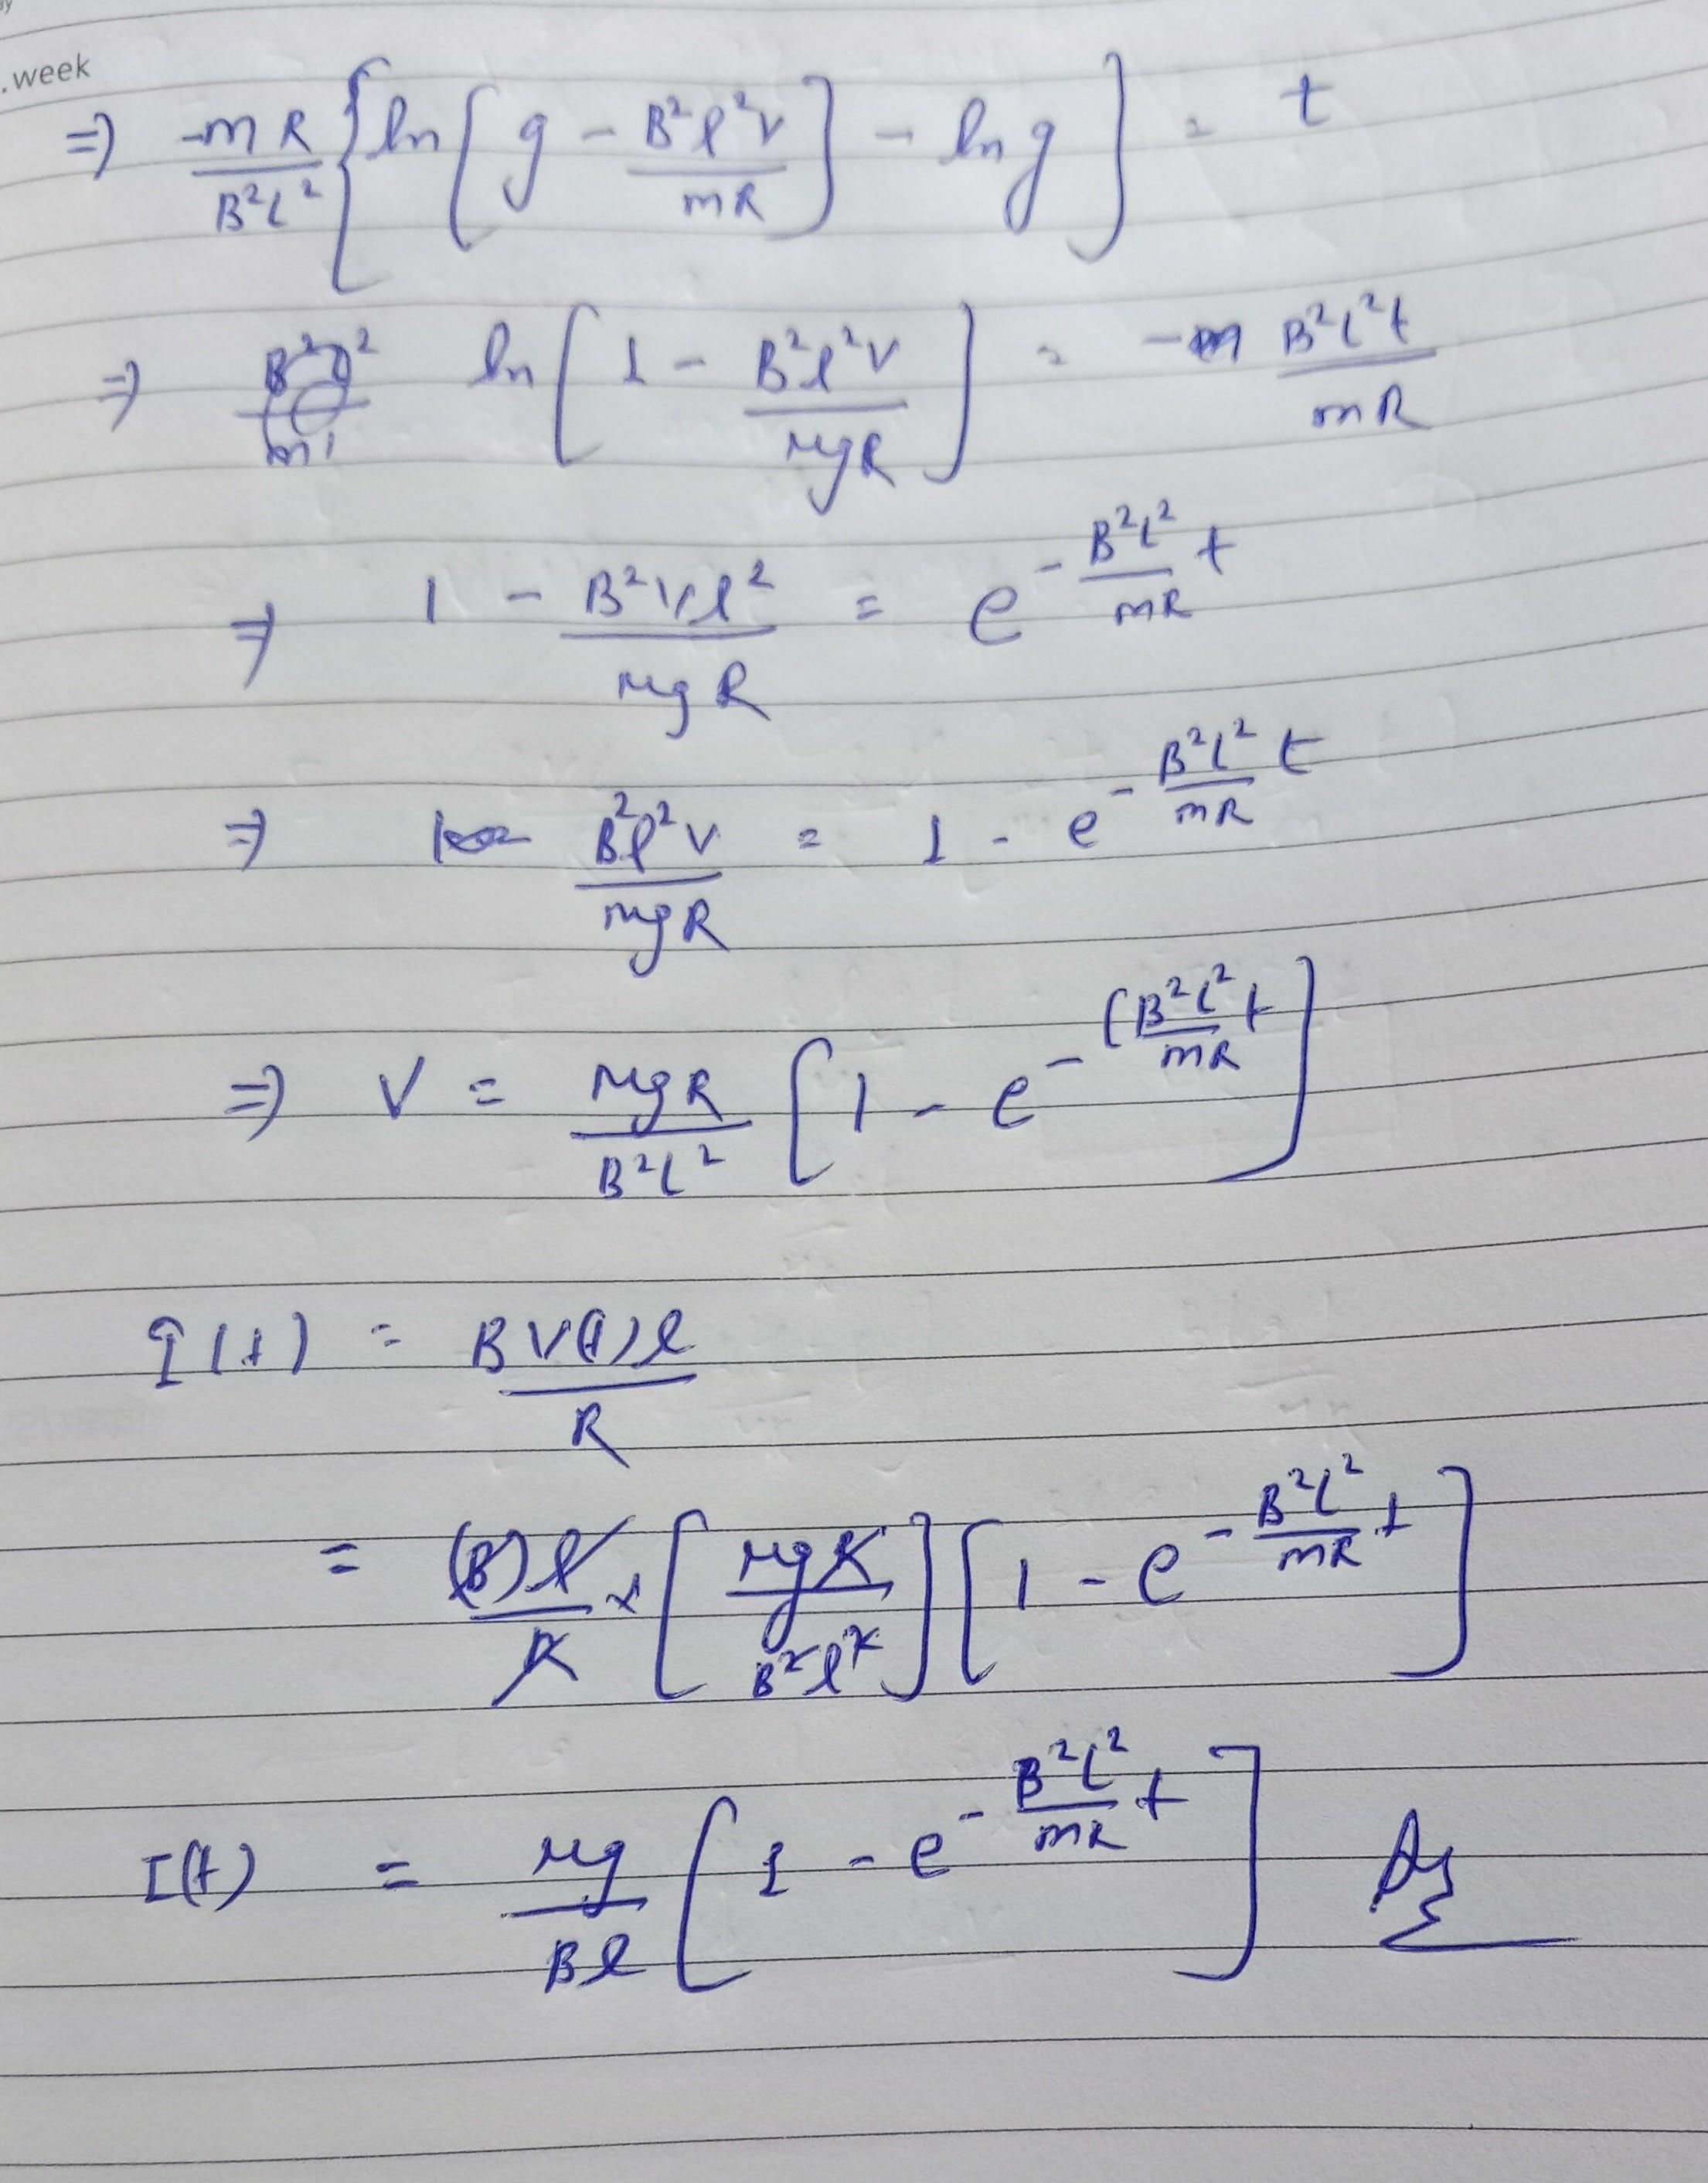 .week
⇒ -mR/B²l² {ln[g - B²l²v/mR] - ln g} = t
⇒ ln[1 - B²l²v/mgR] = - B²l²t/mR
⇒ 1 - B²vl²/mgR = e^(-B²l²/mR t)
⇒ B²l²v/mgR = 1 - e^(-B²l²/mR t)
⇒ v = mgR/B²l² [1 - e^(-(B²l²/mR t)]
I(t) = Bv(t)l/R
= (B)l/R × [mgR/B²l²][1 - e^(-B²l²/mR t)]
I(t) = mg/Bl [1 - e^(-B²l²/mR t)]